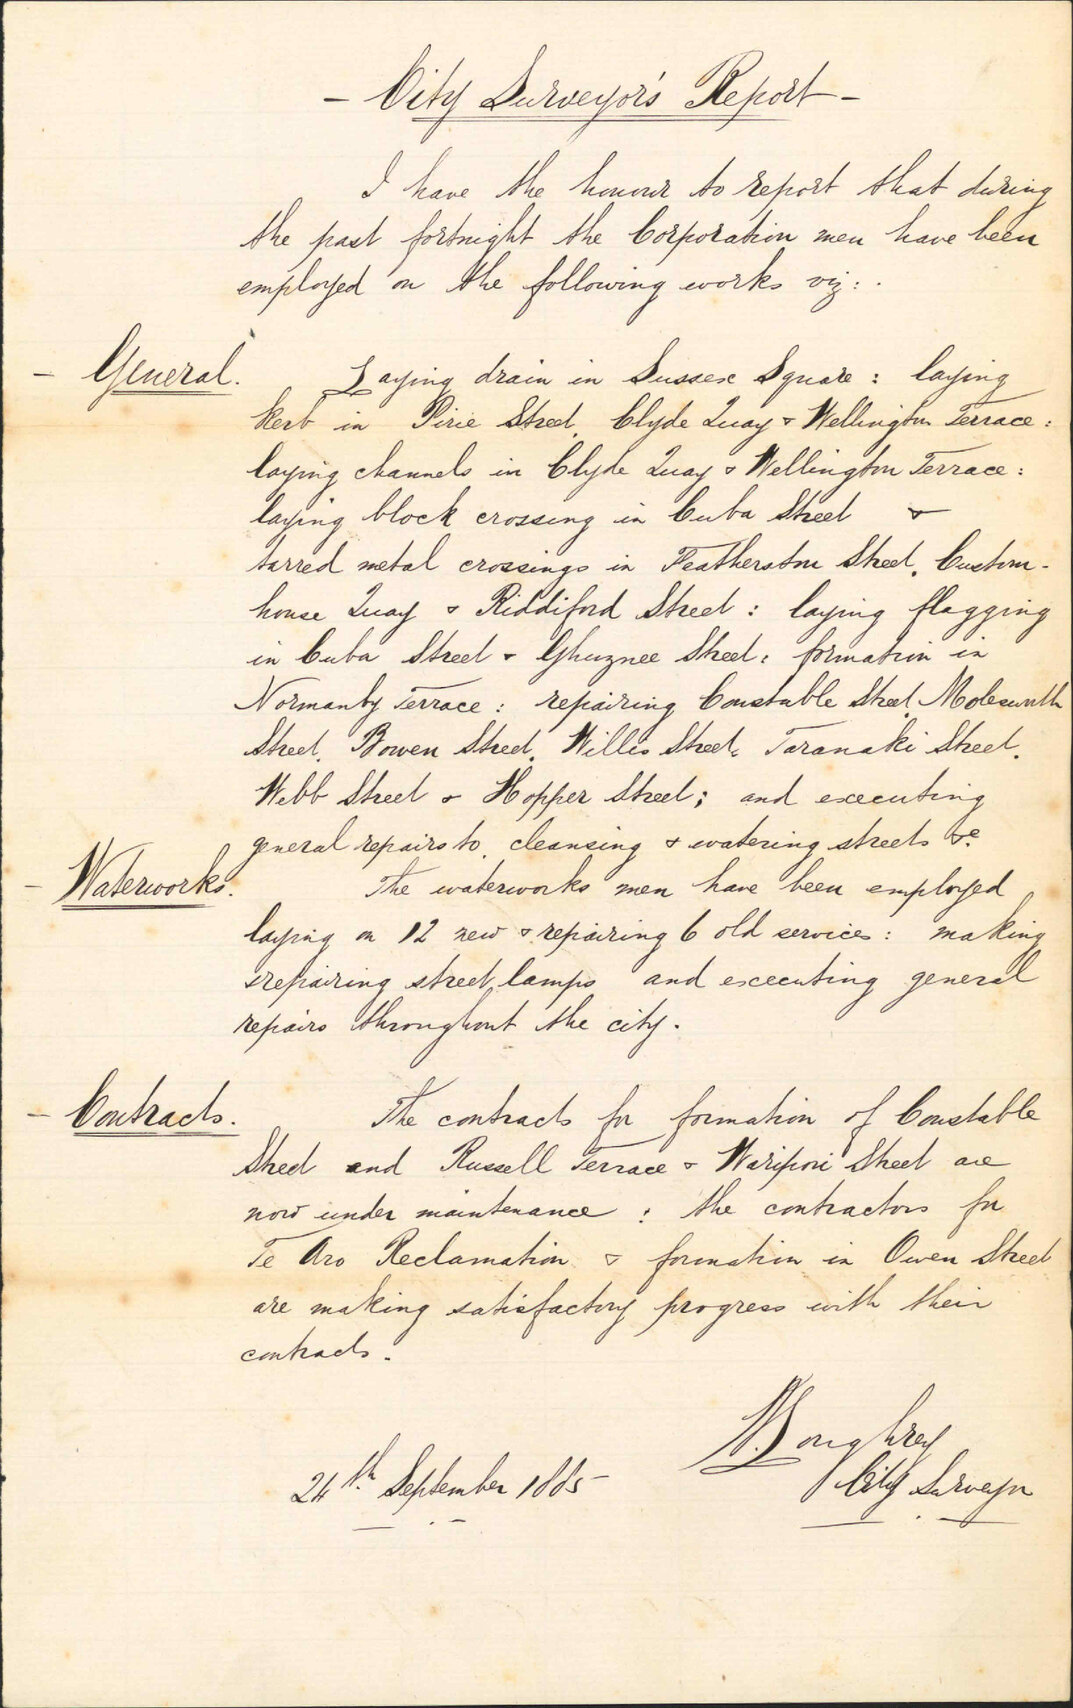 - City Surveyor's Report -
I have the honour to report that during
the past fortnight the Corporation men have been
employed on the following works viz: .
- General. Laying drain in Sussex Square : laying
kerb in Pirie Street, Clyde Quay & Wellington Terrace :
laying channels in Clyde Quay & Wellington Terrace :
laying block crossing in Cuba Street &
tarred metal crossings in Featherston Street, Custom-
house Quay & Riddiford Street : laying flagging
in Cuba Street & Ghuznee Street : formation in
Normanby Terrace : repairing Constable Street, Molesworth
Street, Bowen Street, Willis Street, Taranaki Street,
Webb Street & Hopper Street; and executing
general repairs to, cleansing & watering streets &c.
- Waterworks. The waterworks men have been employed
laying on 12 new & repairing 6 old services : making
& repairing street lamps and executing general
repairs throughout the city.
- Contracts. The contracts for formation of Constable
Street and Russell Terrace & Waripori Street are
now under maintenance : the contractors for
Te Aro Reclamation & formation in Owen Street
are making satisfactory progress with their
contracts.
Loughrey
24th September 1885 City Surveyor